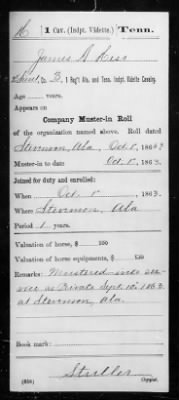 1 Cav. (Indpt. Vidette.) Tenn.
James A
B, 1 Reg't Ala. and Tenn. Indpt. Vidette Cavalry.
Age years.
Appears on
Company Muster-in Roll
of the organization named above. Roll dated
Stevenson, Ala, Oct. 8, 1863
Muster-in to date Oct. 8, 1863.
Joined for duty and enrolled:
When Oct. 8, 1863.
Where Stevenson, Ala
Period 1 years.
Valuation of horse, $ 100
Valuation of horse equipments, $ 100
Remarks: Mustered into ser-
vice as Private Sept. 10, 1863
at Stevenson, Ala.
Book mark:
Copyist.